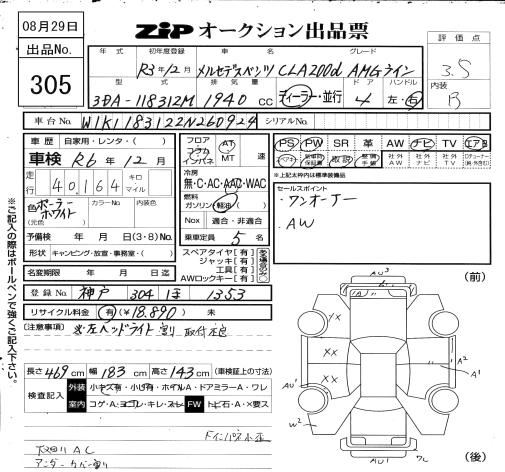 08月29日
出品No.
305
ZIP オークション出品票
評価点
3.5
内装
B
年式 初年度登録 車名 グレード
R3年12月 メルセデスベンツ CLA200d AMGライン
型式 排気量 ドア ハンドル
3DA-118312M 1940 cc ディーラー・並行 4 左・右
車台No. W1K1183122N260924 シリアルNo.
車歴 自家用・レンタ・( )
車検 R6年12月
走行 40,164 キロ マイル
色 ポーラーホワイト
(元色)
カラーNo.
色No.
予備検 年 月 日(3・8)No.
形状 キャンピング・放宣・事務室・( )
名変期限 年 月 日迄
フロア コラム インパネ
AT MT 速
冷房
無・C・AC・AAC・WAC
燃料
ガソリン・軽油・( )
Nox 適合・非適合
乗車定員 5 名
スペアタイヤ[有]
ジャッキ[有]
工具[有]
AWロックキー[有]
PS PW SR 革 AW ナビ TV エアB
取説
社外AW 社外ナビ 社外TV
※上記太枠内は標準装備品
セールスポイント
・ワンオーナー
・AW
登録No. 神戸 304 1353
リサイクル料金 有(¥18,890) 未
(注意事項)
※左ヘッドライト割 取付不良
長さ 469cm 幅 183cm 高さ 143cm (車検証上の寸法)
検査記入
外装 小キズ有・小凹有・ホイルA・ドアミラーA・ワレ
室内 コゲ・A・ヨゴレ・キレ・スレ
FW トビ石・A・X要ス
アンダーカバー割
※ご記入の際はボールペンで強くご記入下さい。
(前)
(後)
AU³
YX
XX
XX
AU¹
W²
A²
A¹